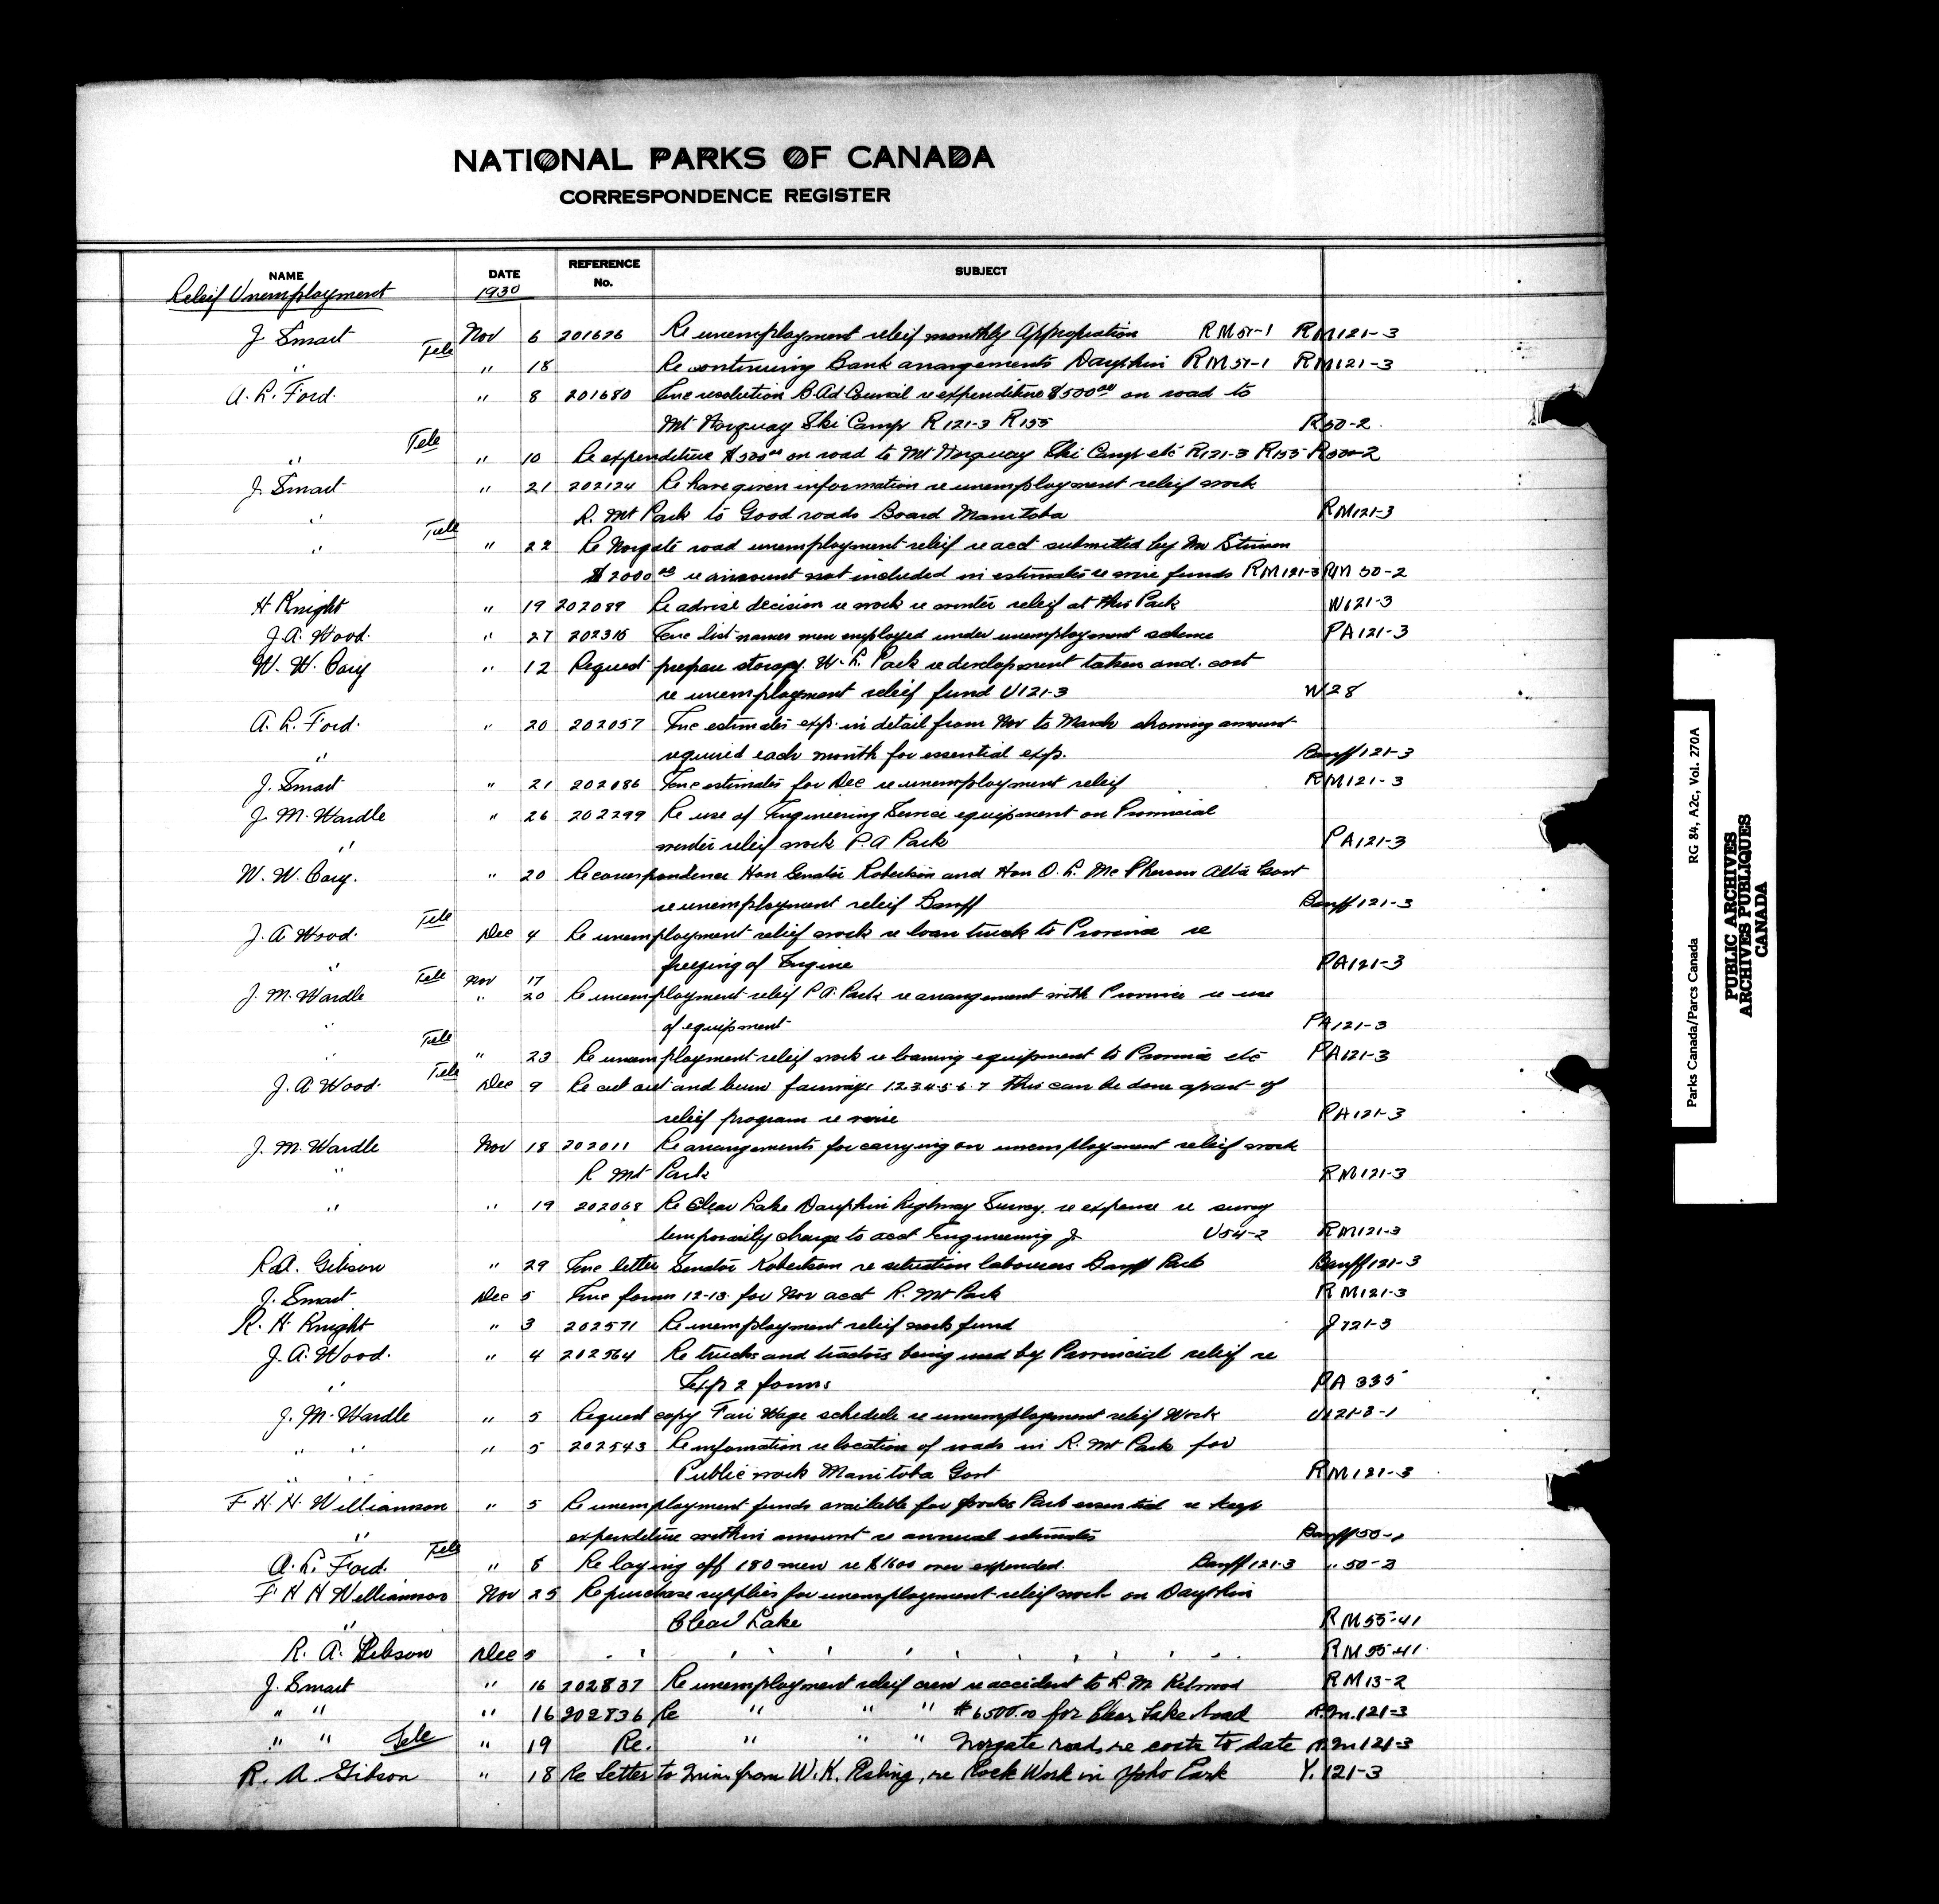 NATIONAL PARKS OF CANADA
CORRESPONDENCE REGISTER
NAME DATE REFERENCE No. SUBJECT
Releif Unemployment 1930
J. Smart Nov 6 201626 Re unemployment releif monthly Appropriation RM51-1 RM121-3
" Tele " 18 Re continuing Bank arrangements Dauphin RM51-1 RM121-3
A. L. Ford. " 8 201680 Enc resolution B. Ad Council re expenditure $500.00 on road to
Mt Norquay Ski Camp R121-3 R155 R50-2
" Tele " 10 Re expenditure $500.00 on road to Mt Norquay Ski Camp etc R121-3 R155 R50-2
J. Smart " 21 202124 Re have given information re unemployment releif work
" R. Mt Park to Good roads Board Manitoba RM121-3
" Tele " 22 Re Norgate road unemployment releif re acct submitted by Mr Stinson
$2000.00 re amount not included in estimates re wire funds RM121-3 RM 50-2
H Knight " 19 202089 Re advise decision re work re winter releif at this Park W121-3
J. A. Wood. " 27 202315 Enc list names men employed under unemployment scheme PA121-3
W. W. Cory " 12 Request prepare W. L. Park re development taken and cost
re unemployment releif fund U121-3 W28
A. L. Ford. " 20 202057 Enc estimates exp. in detail from Nov to March showing amount
" required each month for essential exp. Banff 121-3
J. Smart " 21 202086 Enc estimates for Dec re unemployment releif RM121-3
J. M. Wardle " 26 202299 Re use of Engineering Service equipment on Provincial
" winter releif work P.A Park PA121-3
W. W. Cory. " 20 Re correspondence Hon Senator Robertson and Hon O. L. Mc Pherson Alta Govt
re unemployment releif Banff Banff 121-3
J. A Wood. Tele Dec 4 Re unemployment releif work re loan truck to Province re
" freezing of Engine PA121-3
Tele Nov 17
J. M. Wardle " 20 Re unemployment releif P.A. Park re arrangement with Province re use
" of equipment PA121-3
" Tele " 23 Re unemployment releif work re loaning equipment to Province etc PA121-3
J. A Wood. Tele Dec 9 Re cut out and burn fairways 1.2.3.4.5.6.7 this can be done apart of
releif program re wire PA121-3
J. M. Wardle Nov 18 202011 Re arrangements for carrying on unemployment releif work
" R Mt Park RM121-3
" " 19 202068 Re Clear Lake Dauphin Highway Survey. re expense re survey
temporarily charge to acct Engineering U54-2 RM121-3
R.A. Gibson " 29 Enc letter Senator Robertson re situation labourers Banff Park Banff 121-3
J. Smart Dec 5 Enc form 12-13. for Nov acct R. Mt Park RM121-3
R. H. Knight " 3 202571 Re unemployment releif work fund J121-3
J. A. Wood. " 4 202564 Re trucks and tractors being used by Provincial releif re
" Exp 2 forms PA 335
J. M. Wardle " 5 Request copy Fair Wage schedule re unemployment releif Work U121-3-1
" " " 5 202543 Re information re location of roads in R. Mt Park for
" " Public work Manitoba Govt RM121-3
F. H. H. Williamson " 5 Re unemployment funds available for Park essential re keep
" expenditure within amount re annual estimates Banff 50-2
A. L. Ford. Tele " 8 Re laying off 180 men re $1600 over expended. Banff 121-3 " 50-2
F H H Williamson Nov 25 Re purchase supplies for unemployment releif work on Dauphin
" Clear Lake RM55-41
R. A. Gibson Dec 5 " " " " " " " " RM55-41
J. Smart " 16 202837 Re unemployment releif crew re accident to R. M. RM13-2
" " " 16 202836 Re " " " $6500.00 for Clear Lake Road R.M.121-3
" " Tele " 19 Re. " " " Norgate road, re costs to date R.M121-3
R. A. Gibson " 18 Re letter to Min. from W. K. Esling, re Rock Work in Yoho Park Y.121-3
Parks Canada/Parcs Canada RG 84, A2c, Vol. 270A
PUBLIC ARCHIVES
ARCHIVES PUBLIQUES
CANADA